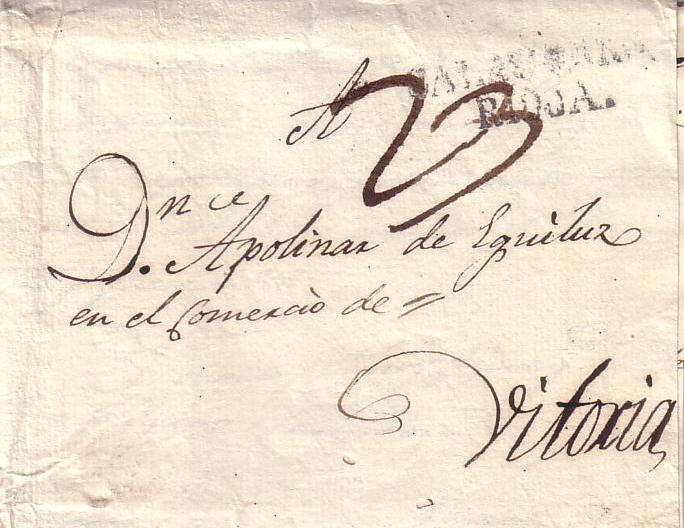 RIOJA.
A
Dn. Apolinar de Eguiluz
en el Comercio de =
Vitoria